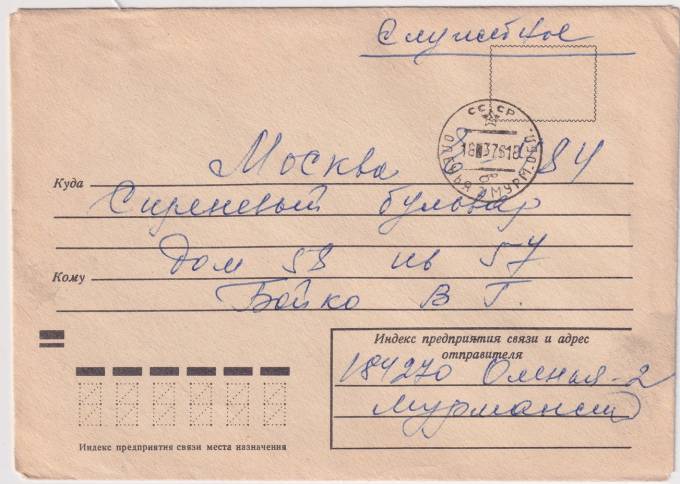 Служебное
СССР
Москва
Куда
Сиреневый бульвар
Дом 58 кв 57
Кому
Бойко В Г.
Индекс предприятия связи и адрес
отправителя
184270 Оленья-2
Мурманск
Индекс предприятия связи места назначения